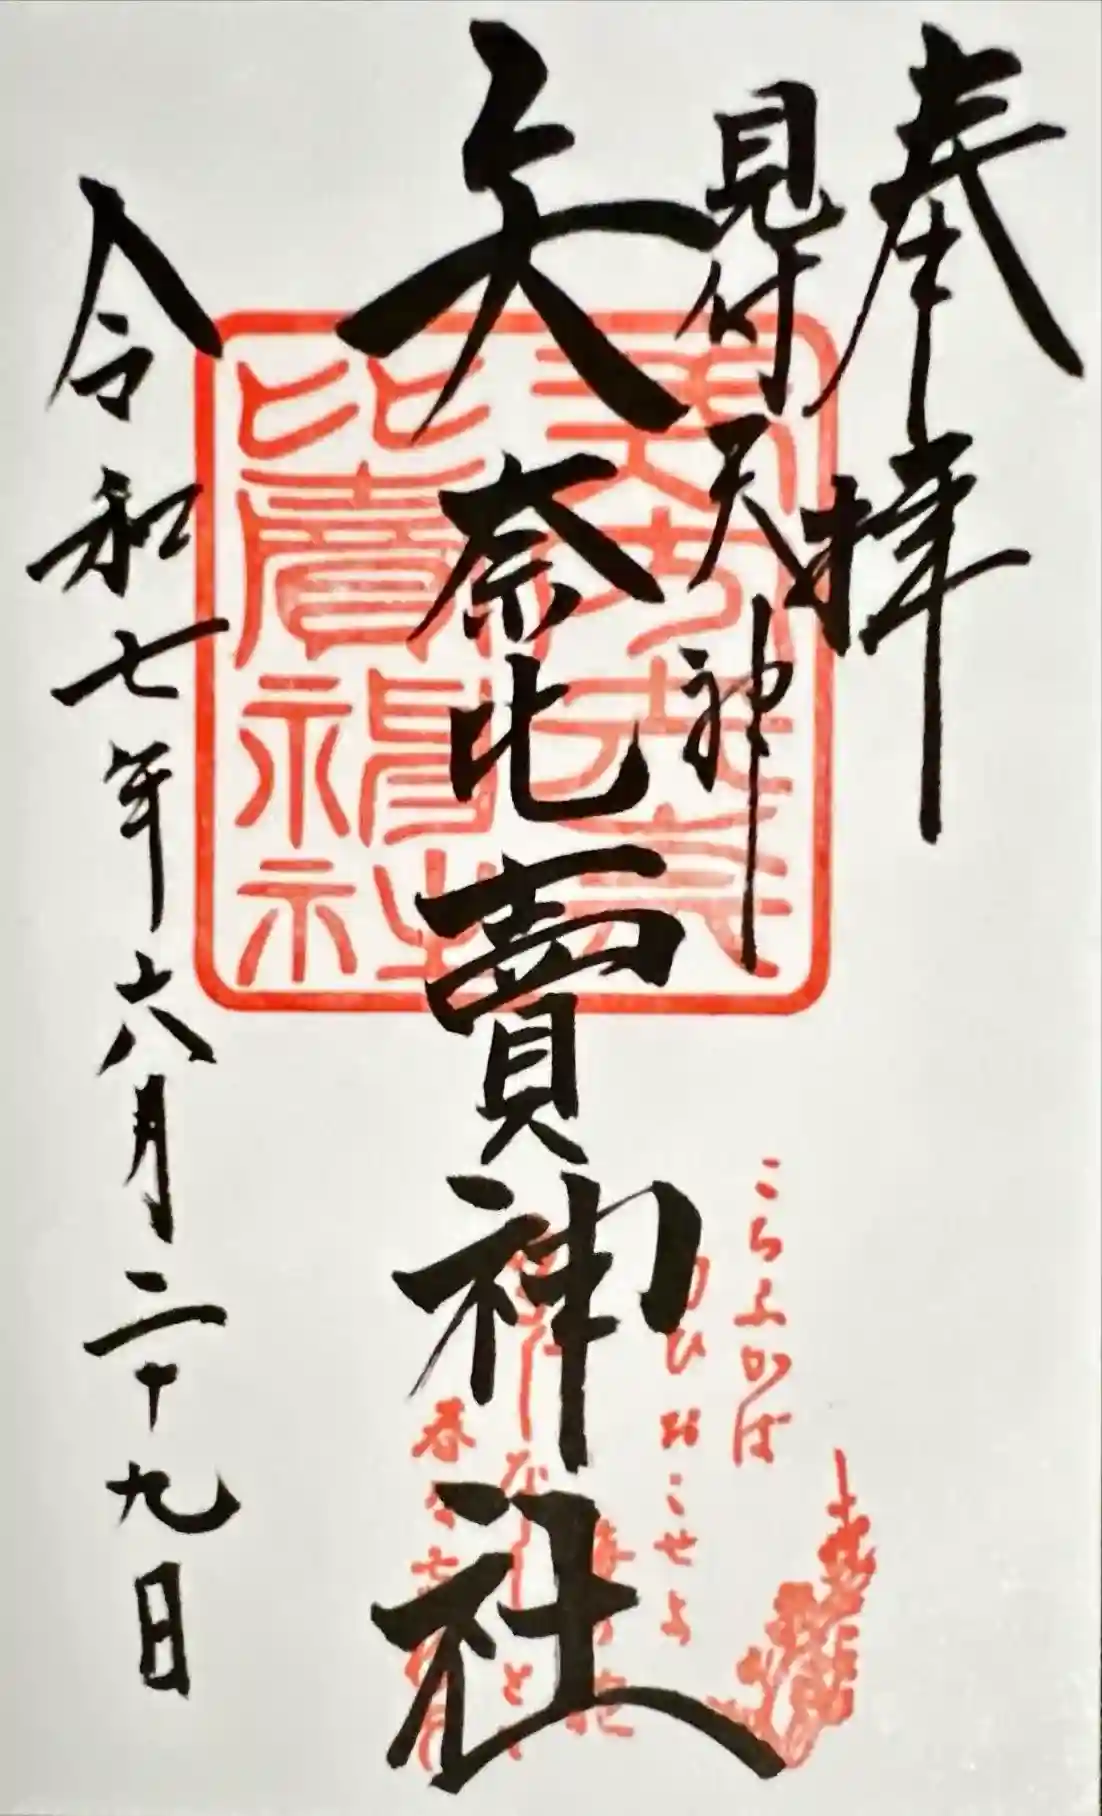 奉拝
見付天神
矢奈比賣神社
令和七年六月二十九日
こちふかば
匂ひおこせよ
梅の花